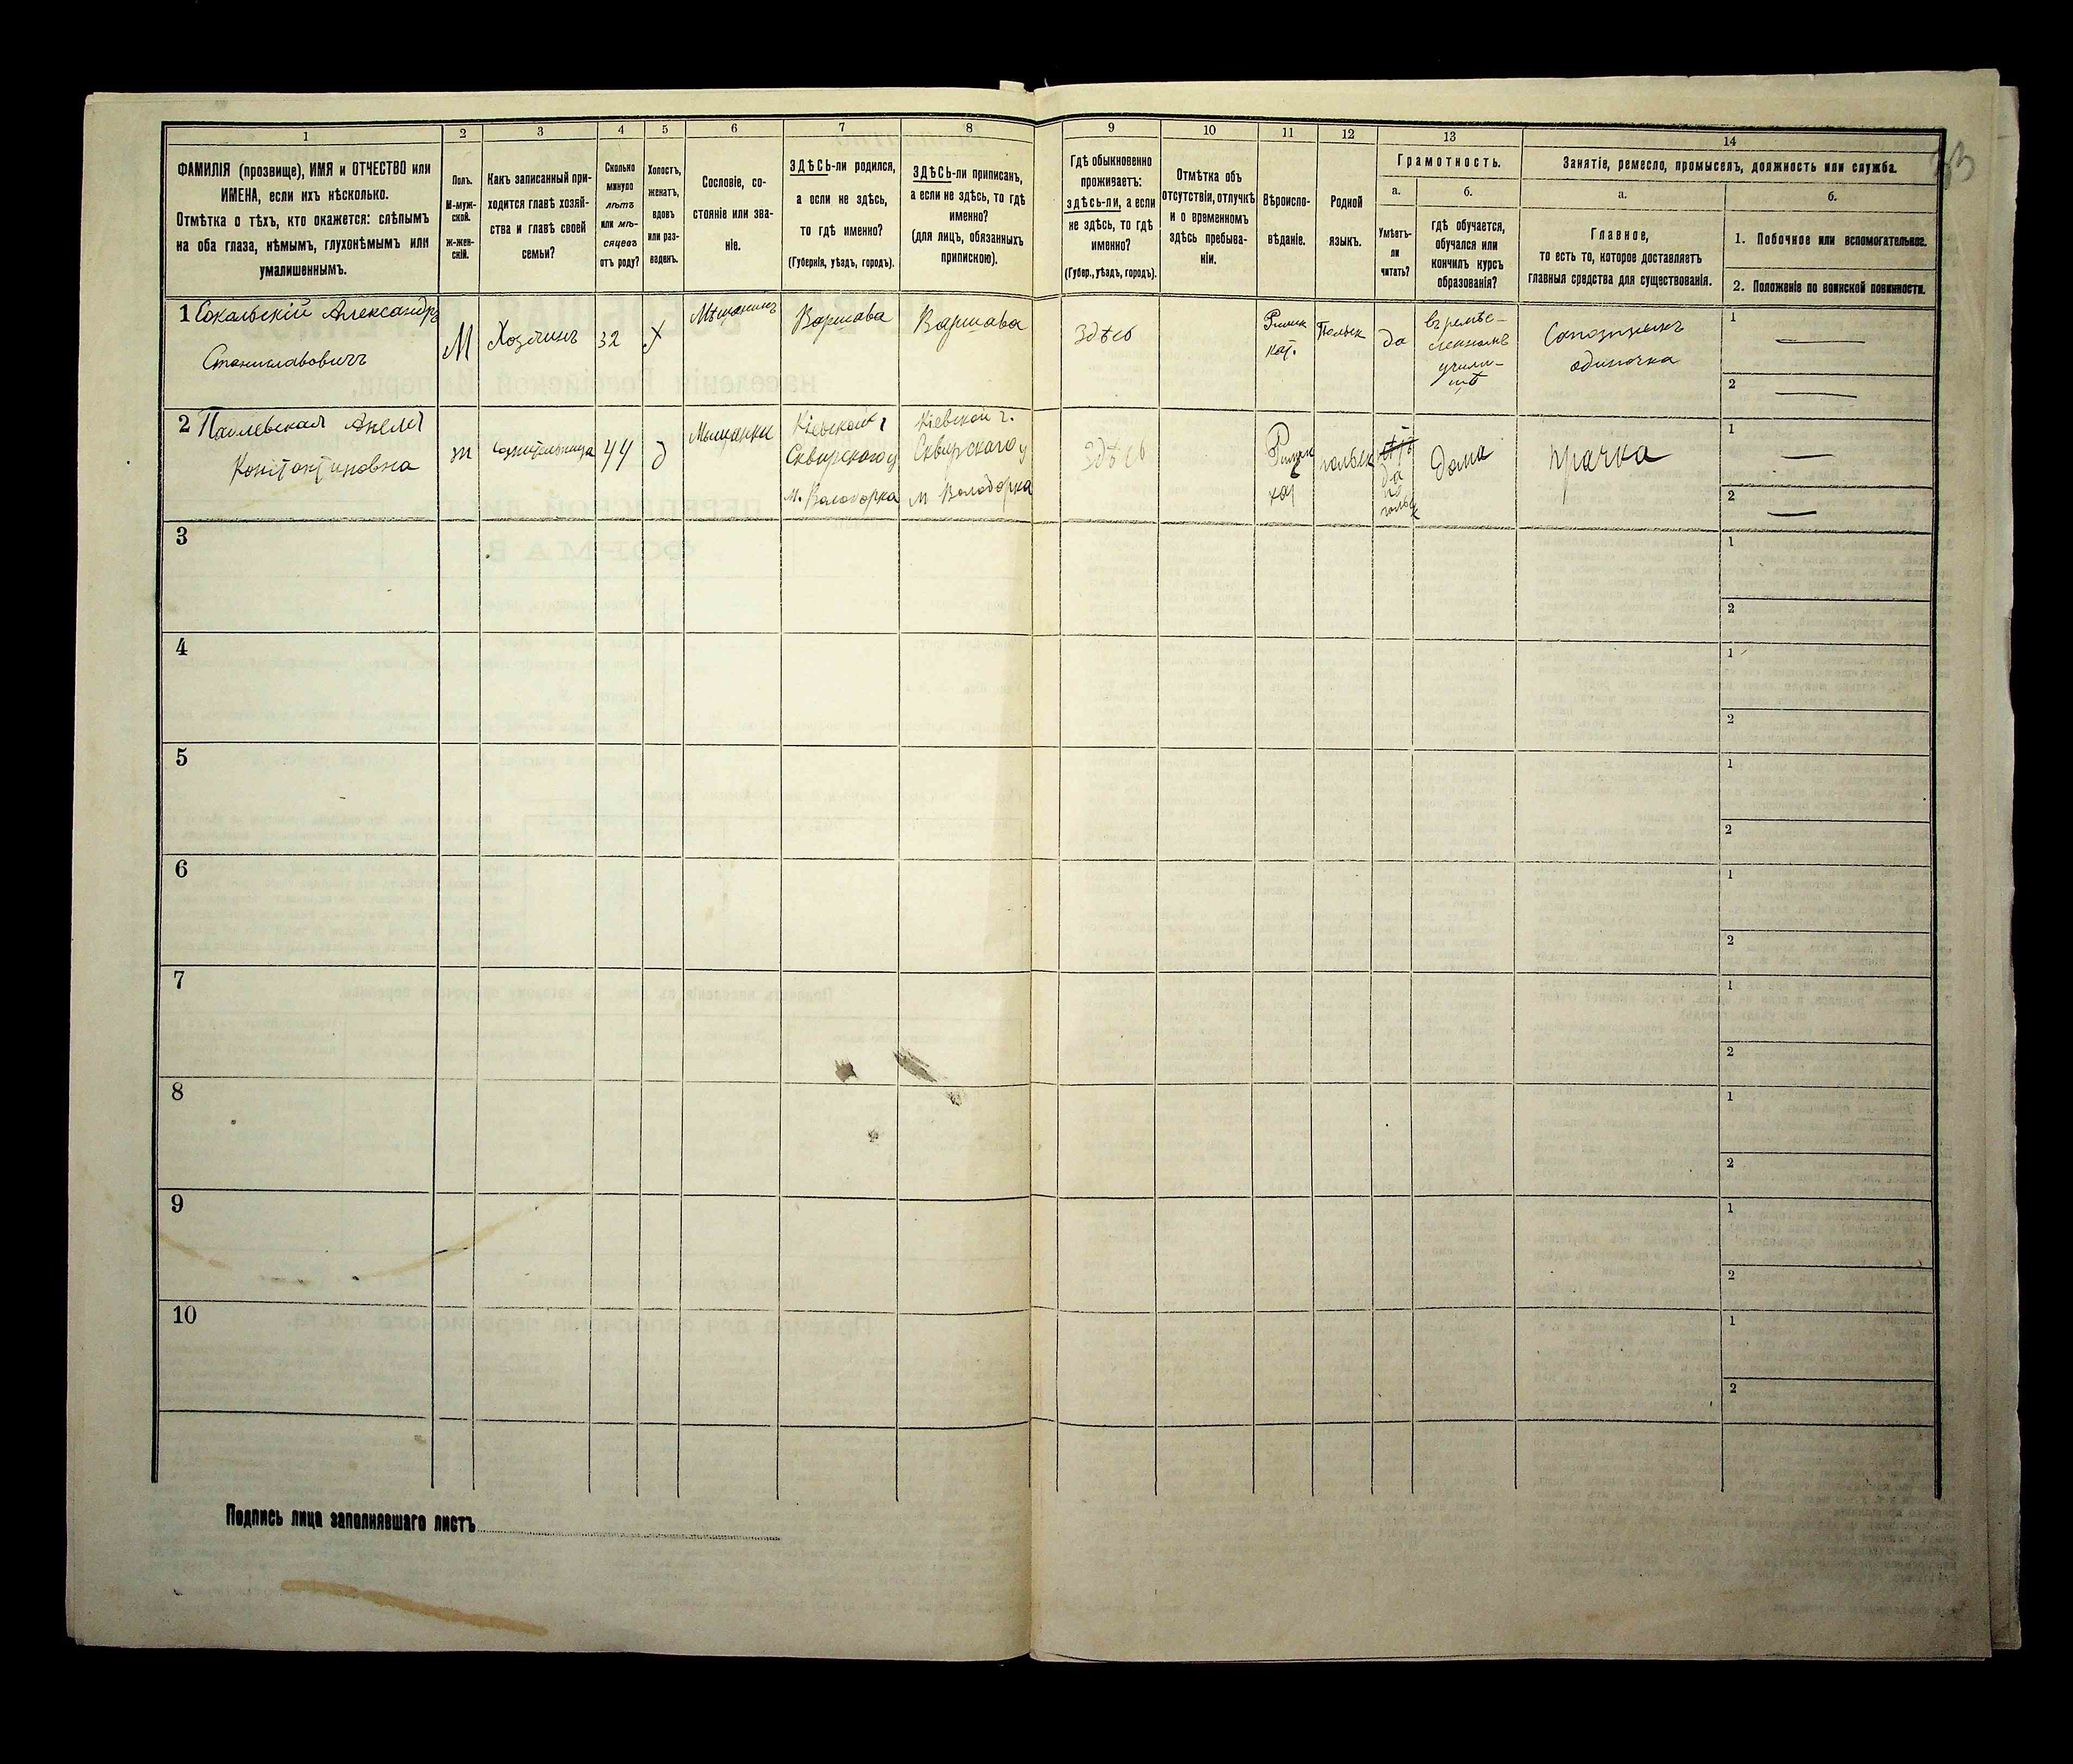 33
1 2 3 4 5 6 7 8 9 10 11 12 13 14
ФАМИЛІЯ (прозвище), ИМЯ и ОТЧЕСТВО или
ИМЕНА, если ихъ нѣсколько.
Отмѣтка о тѣхъ, кто окажется: слѣпымъ
на оба глаза, нѣмымъ, глухонѣмымъ или
умалишеннымъ.
Полъ.
М-муж-
ской.
ж-жен-
скій.
Какъ записанный при-
ходится главѣ хозяй-
ства и главѣ своей
семьи?
Сколько
минуло
лѣтъ
или мѣ-
сяцевъ
отъ роду?
Холостъ,
женатъ,
вдовъ
или раз-
веденъ.
Сословіе, со-
стояніе или зва-
ніе.
ЗДѢСЬ-ли родился,
а если не здѣсь,
то гдѣ именно?
(Губернія, уѣздъ, городъ).
ЗДѢСЬ-ли приписанъ,
а если не здѣсь, то гдѣ
именно?
(для лицъ, обязанныхъ
припискою).
Гдѣ обыкновенно
проживаетъ:
здѣсь-ли, а если
не здѣсь, то гдѣ
именно?
(Губер., уѣздъ, городъ).
Отмѣтка объ
отсутствіи, отлучкѣ
и о временномъ
здѣсь пребыва-
ніи.
Вѣроиспо-
вѣданіе.
Родной
языкъ.
Грамотность.
а.
Умѣетъ-
ли
читать?
б.
гдѣ обучается,
обучался или
кончилъ курсъ
образованія?
Занятіе, ремесло, промыселъ, должность или служба.
а.
Главное,
то есть то, которое доставляетъ
главныя средства для существованія.
б.
1. Побочное или вспомогательное.
2. Положеніе по воинской повинности.
1 Сокальскій Александръ
Станиславовичъ
М
Хозяинъ
32
Х
Мѣщанинъ
Варшава
Варшава
Здѣсь
Римск
кат.
Польск
да
въ ремѣс-
ленномъ
учили-
щѣ
Сапожникъ
одиночка
1
2
2 Павлевская Анеля
Константиновна
ж
44
Мѣщанка
Кіевской г
Сквирскаго у
м. Володарка
Кіевской г.
Сквирскаго у
м Володарка
Здѣсь
Римск
кат
польск
да
по
польск
Дома
прачка
1
2
3
1
2
4
1
2
5
1
2
6
1
2
7
1
2
8
1
2
9
1
2
10
1
2
Подпись лица заполнявшаго листъ